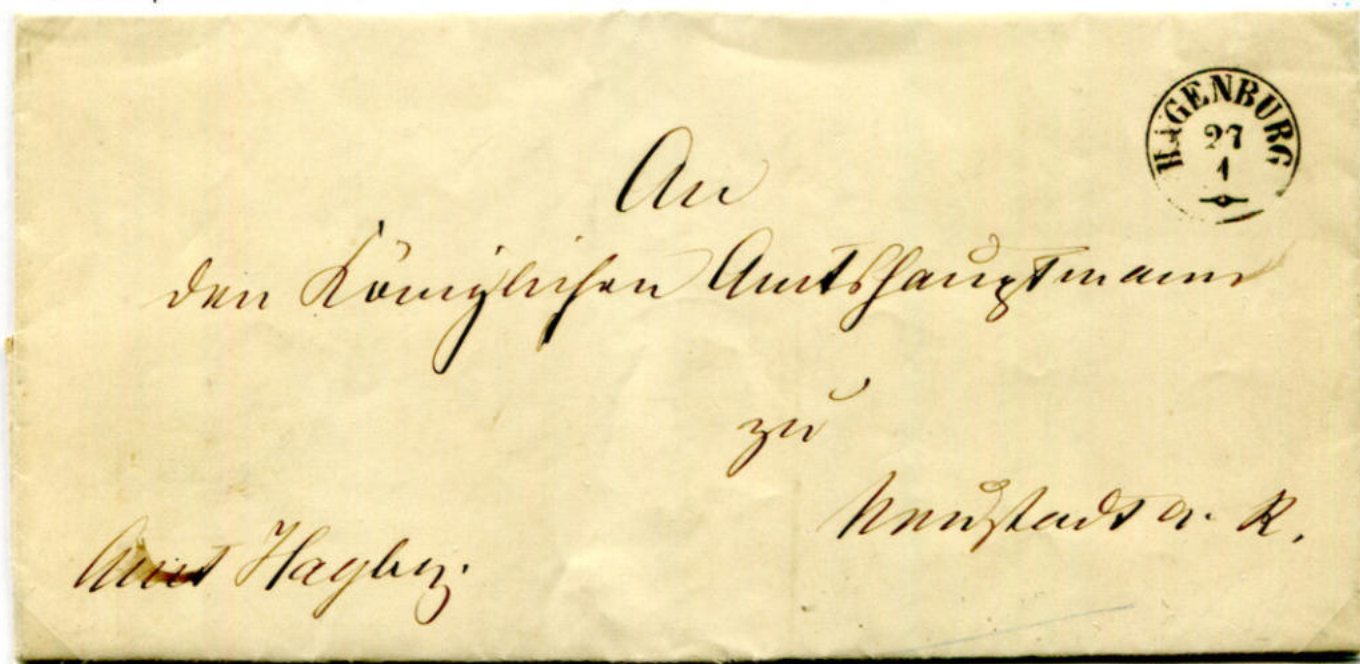 HAGENBURG
27
1
An
den Königlichen Amtshauptmann
zu
Neustadt a. R.
Amt Hagbg.